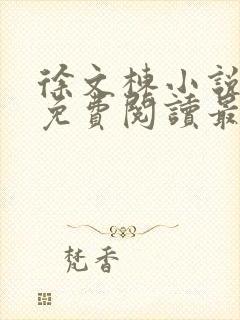 徐文栋小說
免費閱讀最
梵香